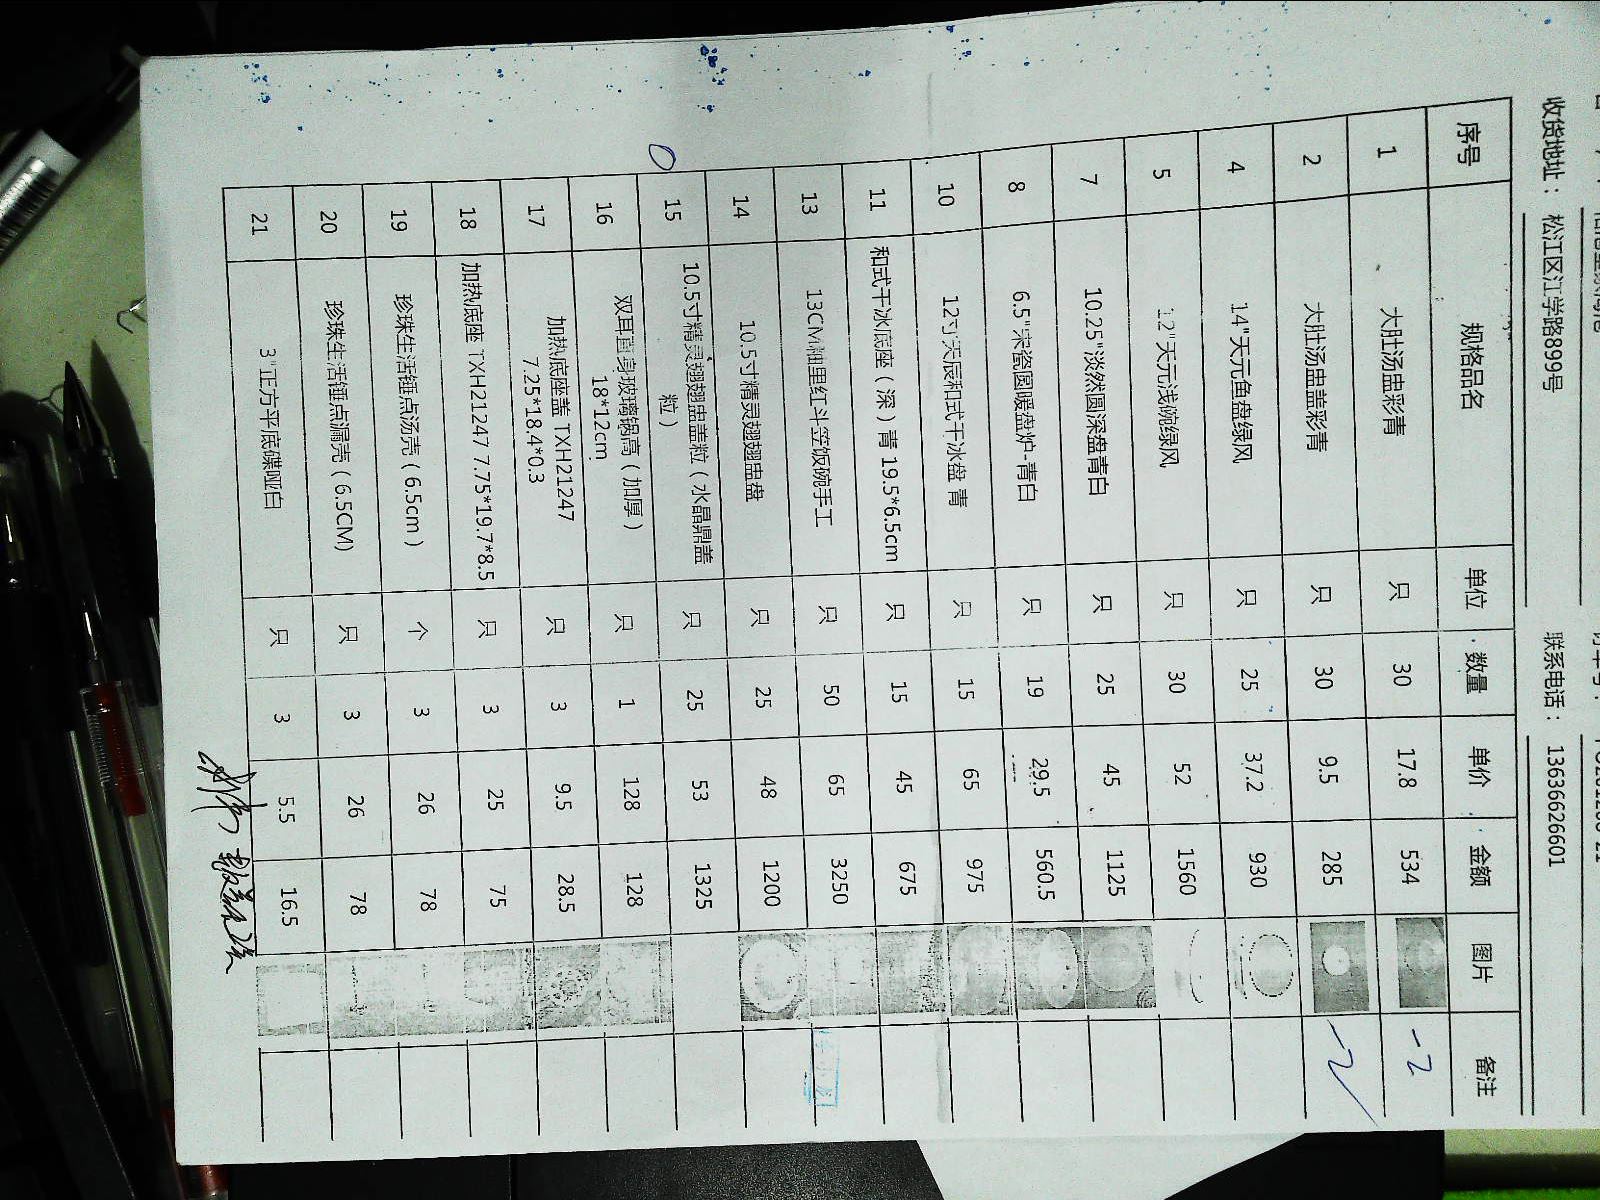 收货地址： 松江区江学路899号 联系电话： 13636626601
序号 规格品名 单位 数量 单价 金额 图片 备注
1 大肚汤盅彩青 只 30 17.8 534 -2
2 大肚汤盅盖彩青 只 30 9.5 285 -2
4 14"天元鱼盘绿风 只 25 37.2 930
5 12"天元浅碗绿风 只 30 52 1560
7 10.25"淡然圆深盘青白 只 25 45 1125
8 6.5"宋瓷圆暖盘炉-青白 只 19 29.5 560.5
10 12寸天辰和式干冰盘 青 只 15 65 975
11 和式干冰底座（深）青 19.5*6.5cm 只 15 45 675
13 13CM釉里红斗笠饭碗手工 只 50 65 3250
14 10.5寸精灵翅翅盅盘 只 25 48 1200
15 10.5寸精灵翅翅盅盖粒（水晶鼎盖
粒） 只 25 53 1325
16 双耳直身玻璃锅高（加厚）
18*12cm 只 1 128 128
17 加热底座盖 TXH21247
7.25*18.4*0.3 只 3 9.5 28.5
18 加热底座 TXH21247 7.75*19.7*8.5 只 3 25 75
19 珍珠生活锤点汤壳（6.5cm） 个 3 26 78
20 珍珠生活锤点漏壳（6.5CM) 只 3 26 78
21 3"正方平底碟哑白 只 3 5.5 16.5